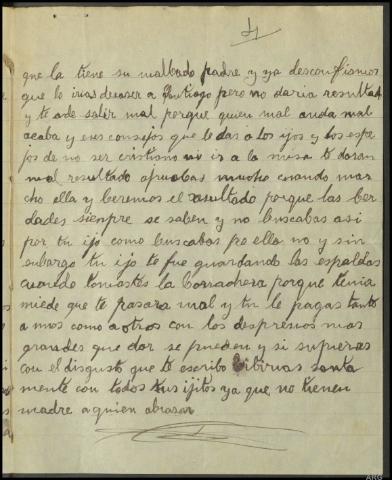 4
que la tiene su malbado padre y ya desconfiamos
que lo irias decaser a Santiago pero no daria resultad
y te ade salir mal porque quien mal anda mal
acaba y eses consejos que le das a los ijos y los espe
jos de no ser cristiano ni ir a la misa te daran
mal resultado apruebas mucho cuando mar
cho ella y beremos el resultado porque las ber
dades sienpre se saben y no buscabas asi
por tu ijo como buscabas po ella no y sin
enbargo tu ijo te fue guardando las espaldas
cuando tomastes la borrachera porque tenia
miede que te pasara mal y tu le pagas tanto
a mos como a otros con los desprenios mas
grandes que dar se pueden y si supieras
con el disgusto que te escribo bibirias santa
mente con todos tus ijitos ya que no tienen
madre a quien abrasar